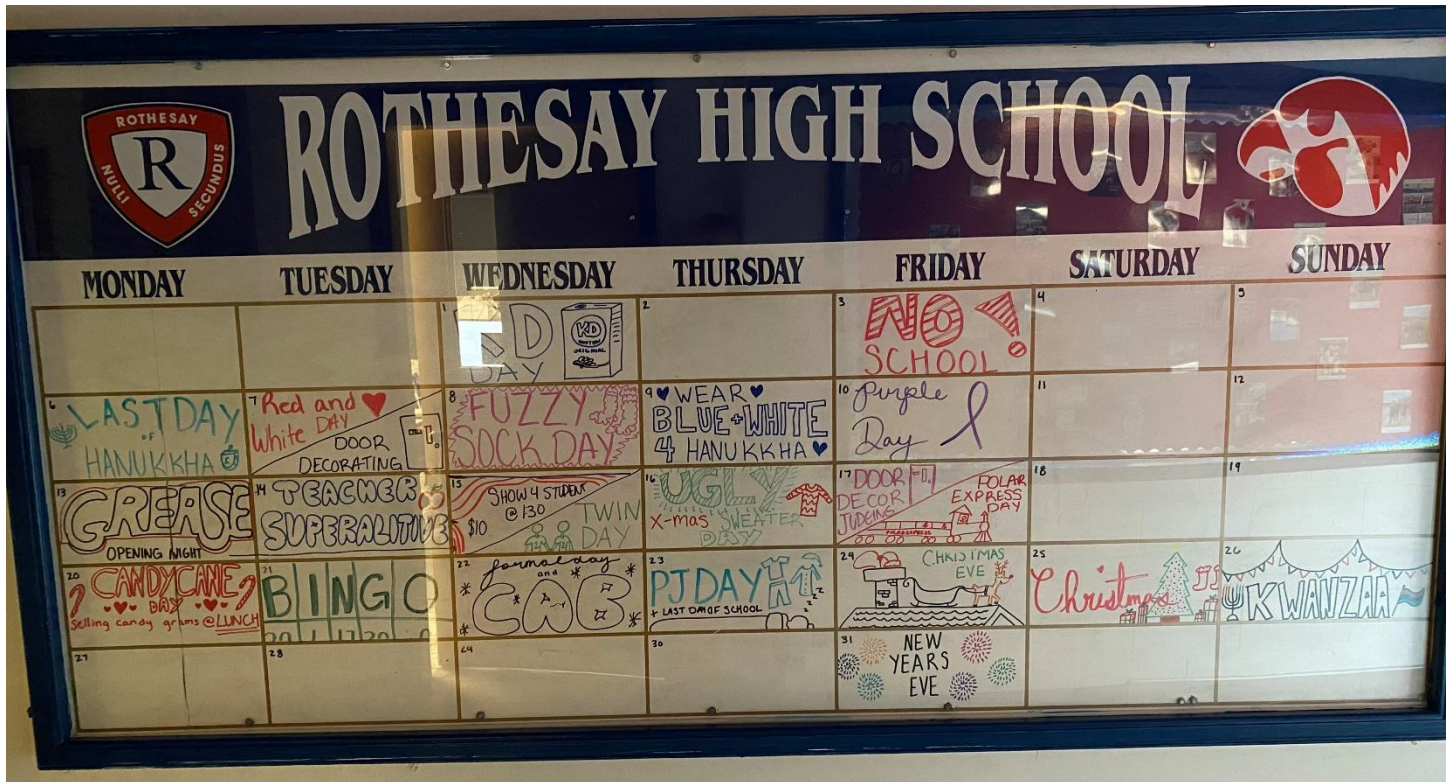 ROTHESAY
R
NULLI
SECUNDUS
ROTHESAY HIGH SCHOOL
MONDAY TUESDAY WEDNESDAY THURSDAY FRIDAY SATURDAY SUNDAY
1
KD
DAY
KD
ORIGINAL
2
3
NO
SCHOOL
4
5
6
LAST DAY
OF
HANUKKHA
7
Red and
White DAY
DOOR
DECORATING
8
FUZZY
SOCK DAY
9
WEAR
BLUE + WHITE
4 HANUKKHA
10
Purple
Day
11
12
13
GREASE
OPENING NIGHT
14
TEACHER
SUPERALITIVE
15
SHOW 4 STUDENT
@ 130
$10
TWIN
DAY
16
UGLY
X-mas SWEATER
DAY
17
DOOR
DECOR
JUDGING
POLAR
EXPRESS
DAY
18
19
20
CANDYCANE
DAY
Selling candy grams @LUNCH
21
BINGO
22
formal day
and
CAB
23
PJ DAY
+ LAST DAY OF SCHOOL
Z Z Z
CHRISTMAS
EVE
25
Christmas
26
KWANZAA
27
28
30
31
NEW
YEARS
EVE